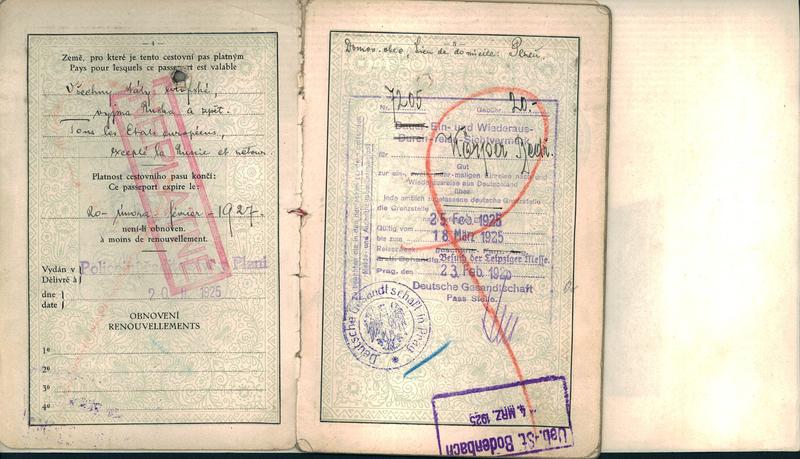 - 4 -
Země, pro které je tento cestovní pas platným
Pays pour lesquels ce passeport est valable
Všechny státy evropské,
vyjma Ruska a zpět.
Tous les Etats européens,
excepté la Russie et retour
Platnost cestovního pasu končí:
Ce passeport expire le:
20. února - février - 1927.
není-li obnoven.
à moins de renouvellement.
Vydán v
Délivré à
Plzni
dne
date
20. II. 1925
OBNOVENÍ
RENOUVELLEMENTS
1º
2º
3º
4º
- 5 -
Domov. obec, Lieu de domicile: Plzeň.
Nr. 7205 Gebühr 20.-
Ein- und Wiederaus-
Sichtvermerk
für
Gut
zur ein- maligen Einreise nach und
Wiederausreise aus Deutschland
über
jede amtlich zugelassene deutsche Grenzstelle
die Grenzstelle
Gültig vom 25 Feb. 1925
bis zum 18 März 1925
Reisezweck:
Besuch der Leipziger Messe.
Prag, den 23 Feb. 1925
Deutsche Gesandtschaft
Pass Stelle.
Deutsche Gesandtschaft in Prag
Ueb.-St. Bodenbach
4. MRZ. 1925